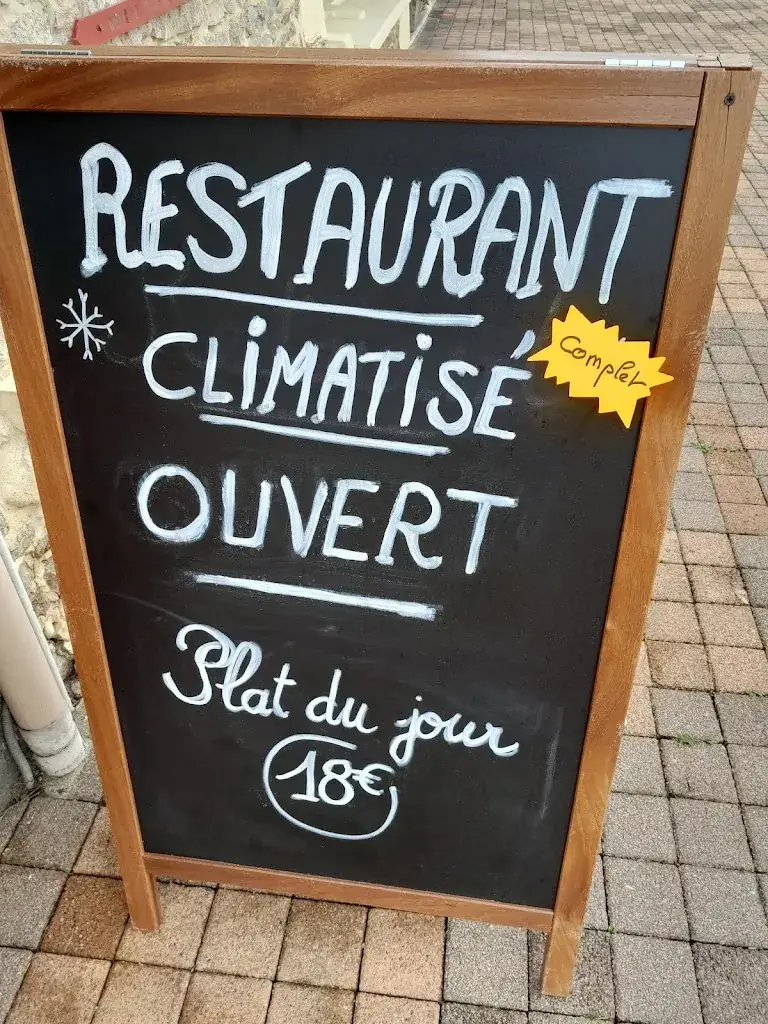 RESTAURANT
CLIMATISÉ
Complet
OUVERT
Plat du jour
18€